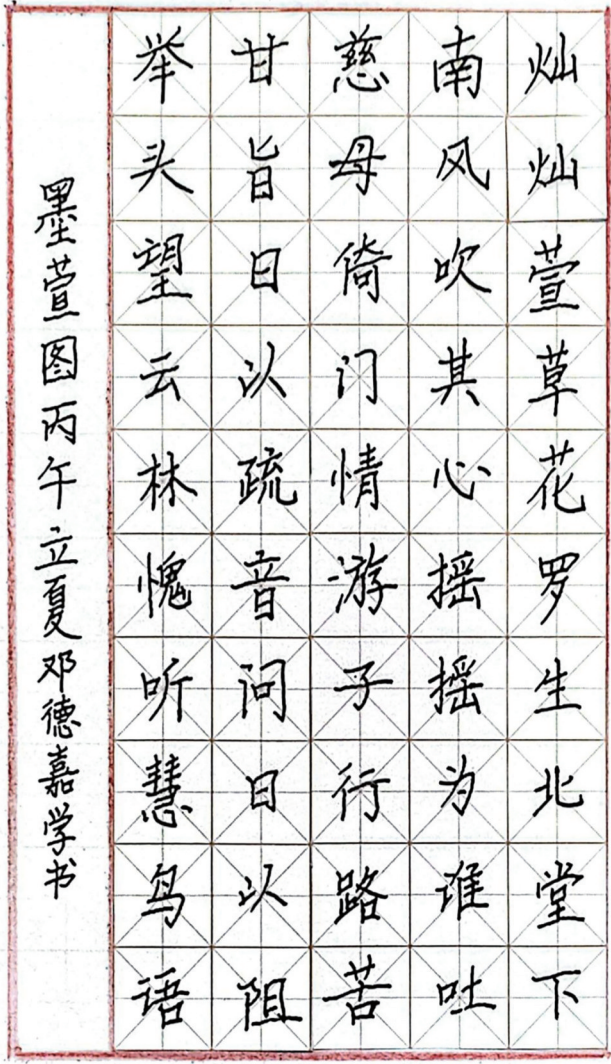 灿灿萱草花罗生北堂下
南风吹其心摇摇为谁吐
慈母倚门情游子行路苦
甘旨日以疏音问日以阻
举头望云林愧听慧鸟语
墨萱图丙午立夏邓德嘉学书